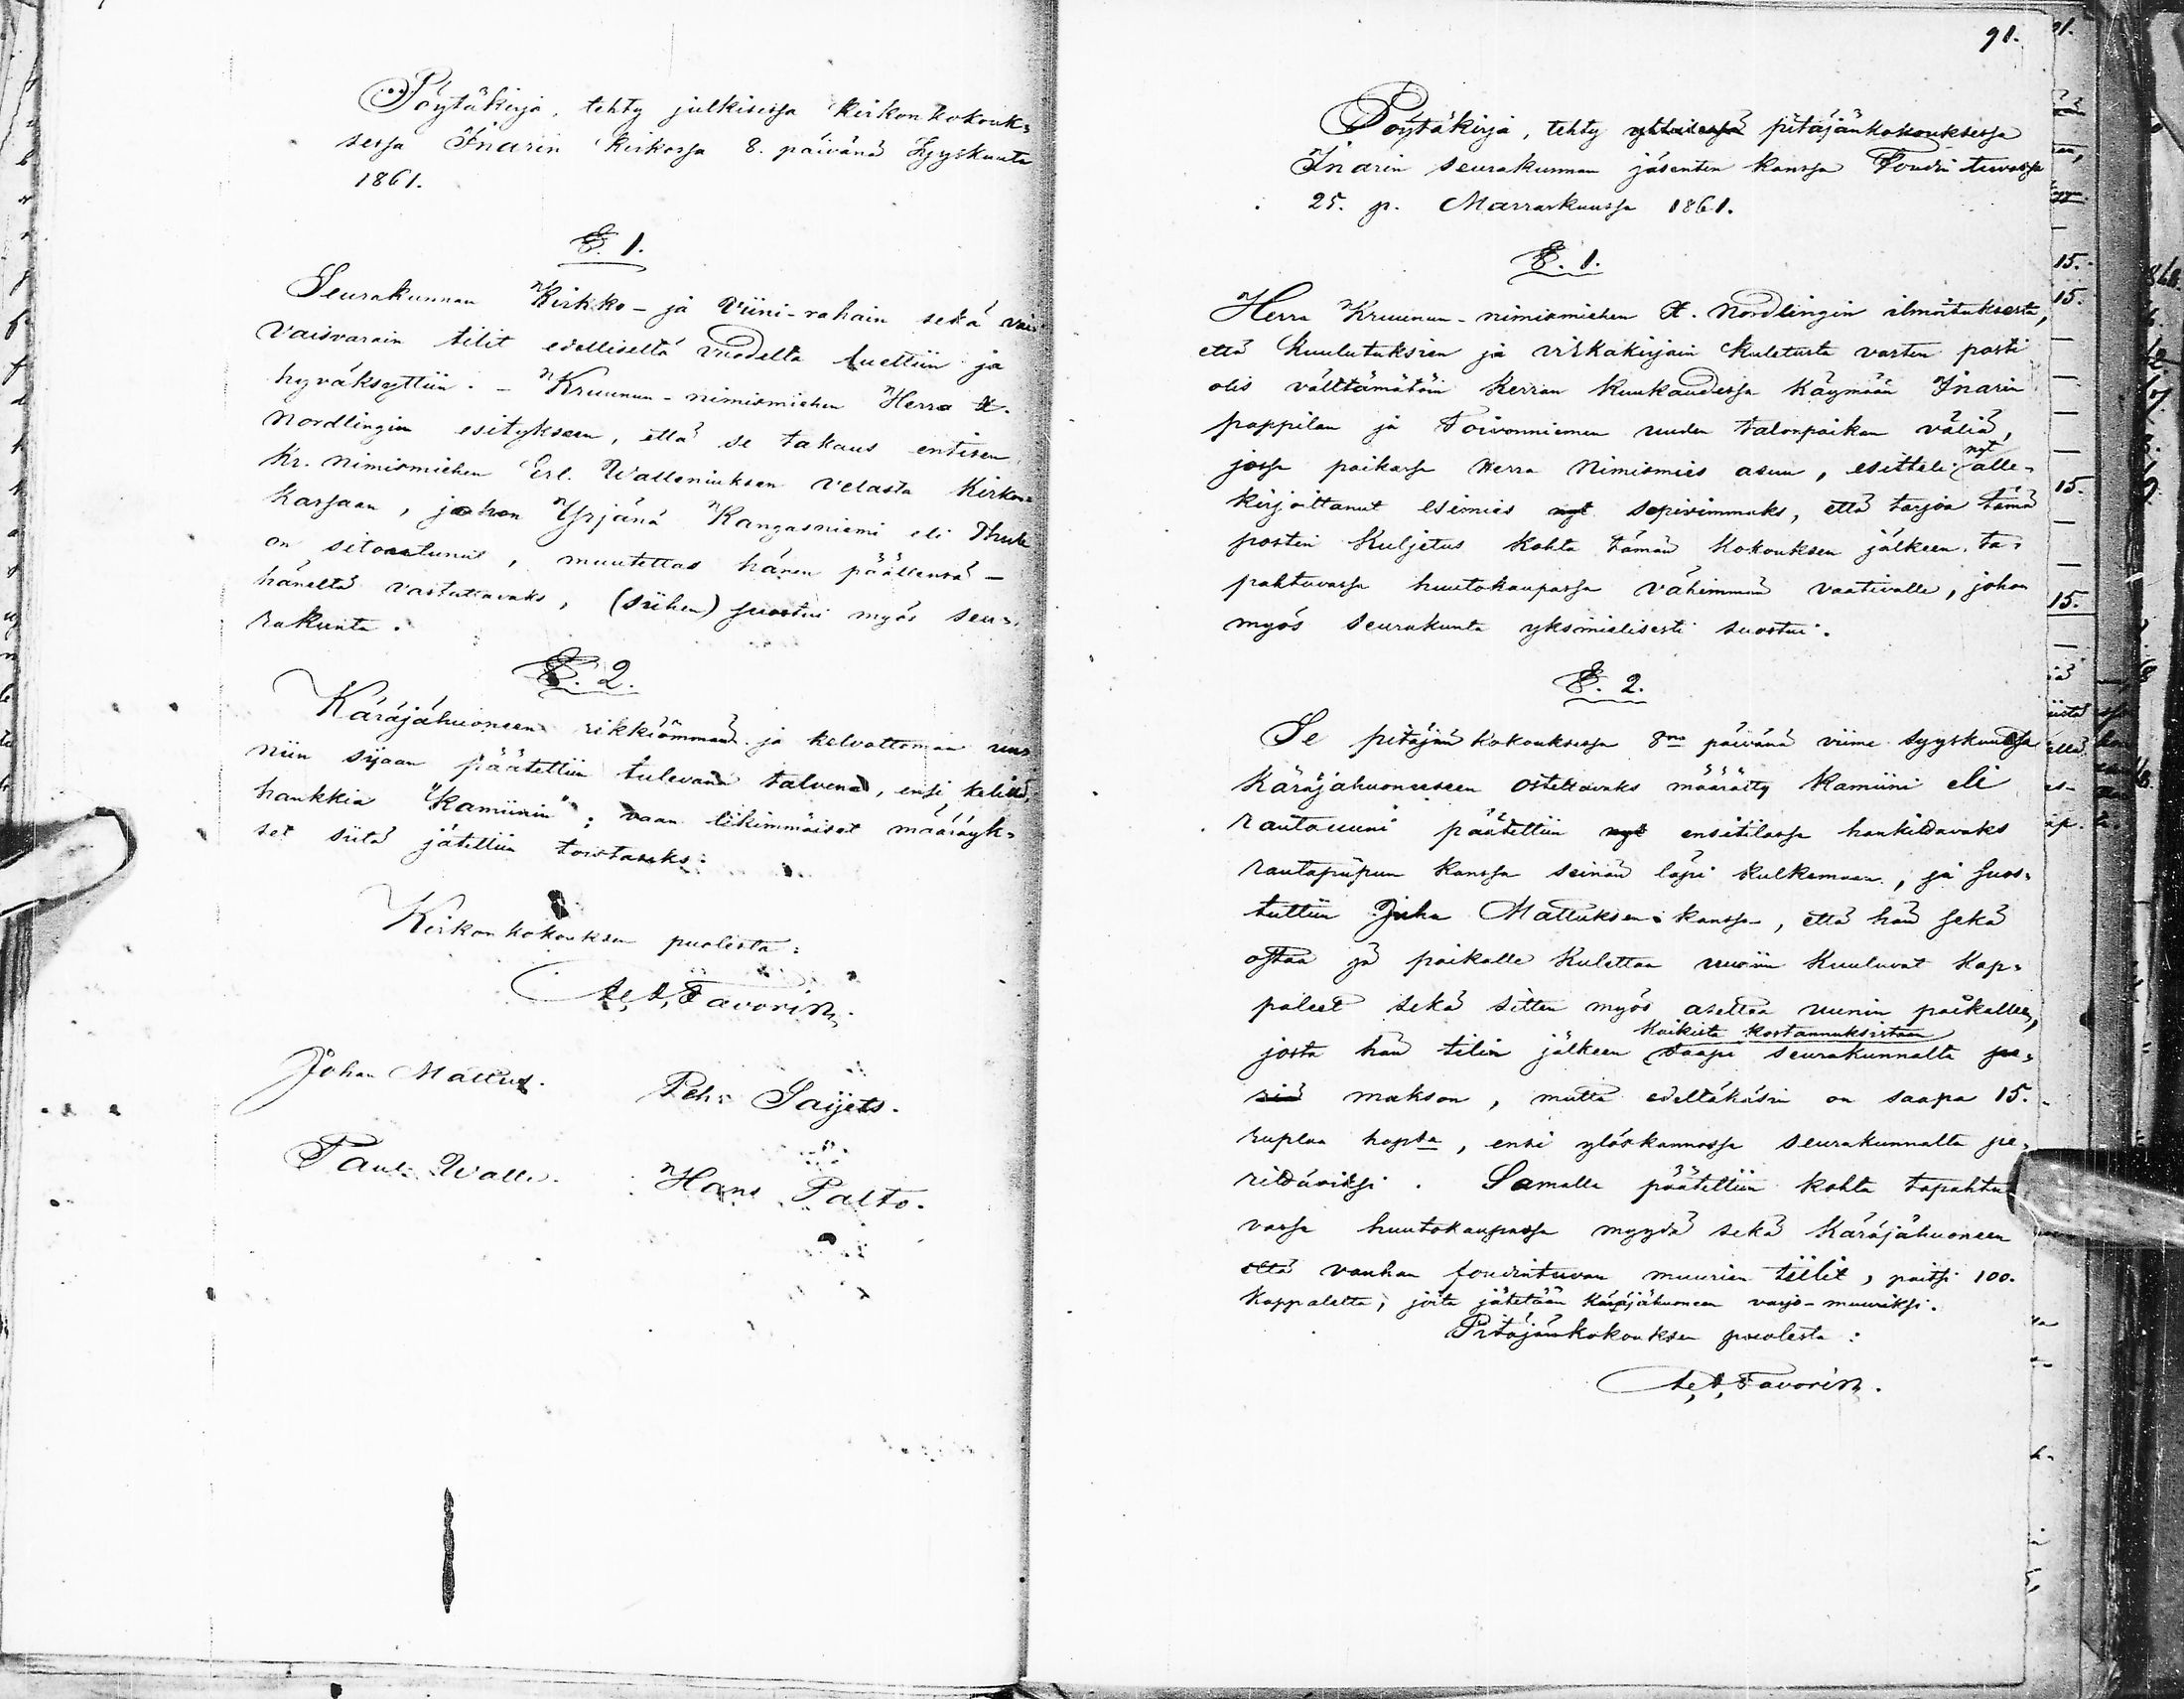 Pöytäkirja, tehty julkisessa Kirkonkokouk=
sessa Inarin Kirkossa 8. päivänä Syyskuuta
1861.
§. 1.
Seurakunnan Kirkko- ja Viini-rahain sekä
Vaisvarain tilit edelliseltä vuodelta luettiin ja
hyväksyttiin. - Kruunun-nimismiehen Herra A.
Nordlingin esitykseen, että se takaus entisen
Kr. nimismiehen Erl. Walleniuksen velasta Kirkon
Kassaan, johon Yrjänä Kangasniemi eli Thule
on sitoutunut, muutettas hänen päällensä -
häneltä vastattavaks, (siihen) suostui myös seu=
rakunta.
§. 2.
Käräjähuoneen rikkiämmän ja kelvottoman uu=
niin sijaan päätettiin tulevana talvena, ensi kelillä,
hankkia "Kamiinin"; vaan likimmäiset määräyk=
set siitä jätettiin toistaseks.
Kirkonkokouksen puolesta:
A. A. Favorin.
Johan Mattus. Pehr Saijets.
Paul Walle. Hans Palto.
91.
Pöytäkirja, tehty yhteisessä pitäjänkokouksessa
Inarin seurakunnan jäsenten kanssa Foudin tuvassa
25. p. Marraskuussa 1861.
§. 1.
Herra Kruunun-nimismiehen A. Nordlingin ilmoituksesta,
että kuulutuksien ja virkakirjain kuletusta varten posti
olis välttämätöin kerran kuukaudessa käymään Inarin
pappilan ja Toivonniemen uuden talonpaikan väliä,
jossa paikassa Herra Nimismies asuu, esitteli nyt alle=
kirjoittanut esimies nyt sopivimmaks, että tarjoa tämä
postin kuljetus kohta tämän kokouksen jälkeen ta=
pahtuvassa huutokaupassa vähimmän vaativalle, johon
myös seurakunta yksimielisesti suostui.
§. 2.
Se pitäjän kokouksessa 8na päivänä viime syyskuussa
Käräjähuoneeseen ostettavaks määrätty Kamiini eli
rautauuni päätettiin nyt ensitilassa hankittavaks
rautapiipun kanssa seinän läpi kulkemaan, ja suos=
tuttiin Juha Mattuksen kanssa, että hän sekä
ostaa ja paikalle kulettaa uuniin kuuluvat kap=
paleet sekä sitten myös asettaa uunin paikallen,
kaikista kostannuksistaan
josta hän tilin jälkeen saapi seurakunnalta pe=
riä makson, mutta edeltäkäsin on saapa 15.
ruplaa hopea, ensi ylöskannossa seurakunnalta pe=
rittäviksi. Samalla päätettiin kohta tapahtu
vassa huutokaupassa myydä sekä Käräjähuoneen
että vanhan foudintuvan muurien tiilit, paitsi 100.
kappaletta, joita jätetään Käräjähuoneen varjo-muuriksi.
Pitäjänkokouksen puolesta:
A. A. Favorin.